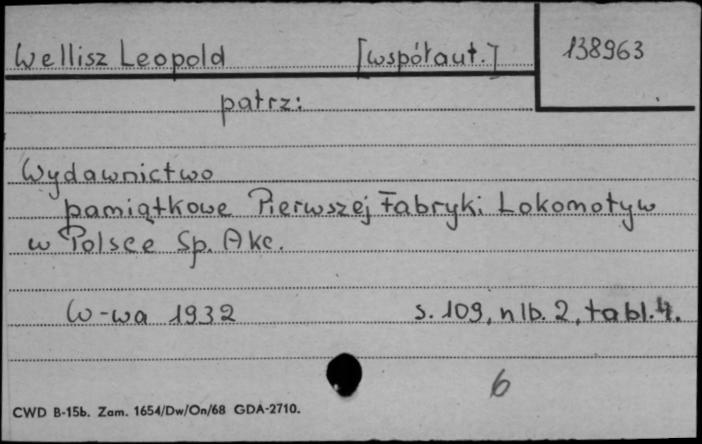 Wellisz Leopold [współaut.] 138963
patrz:
Wydawnictwo
pamiątkowe Pierwszej Fabryki Lokomotyw
w Polsce Sp. Akc.
W-wa 1932 s. 109, nlb. 2, tabl. 4.
6
CWD B-15b. Zam. 1654/Dw/On/68 GDA-2710.